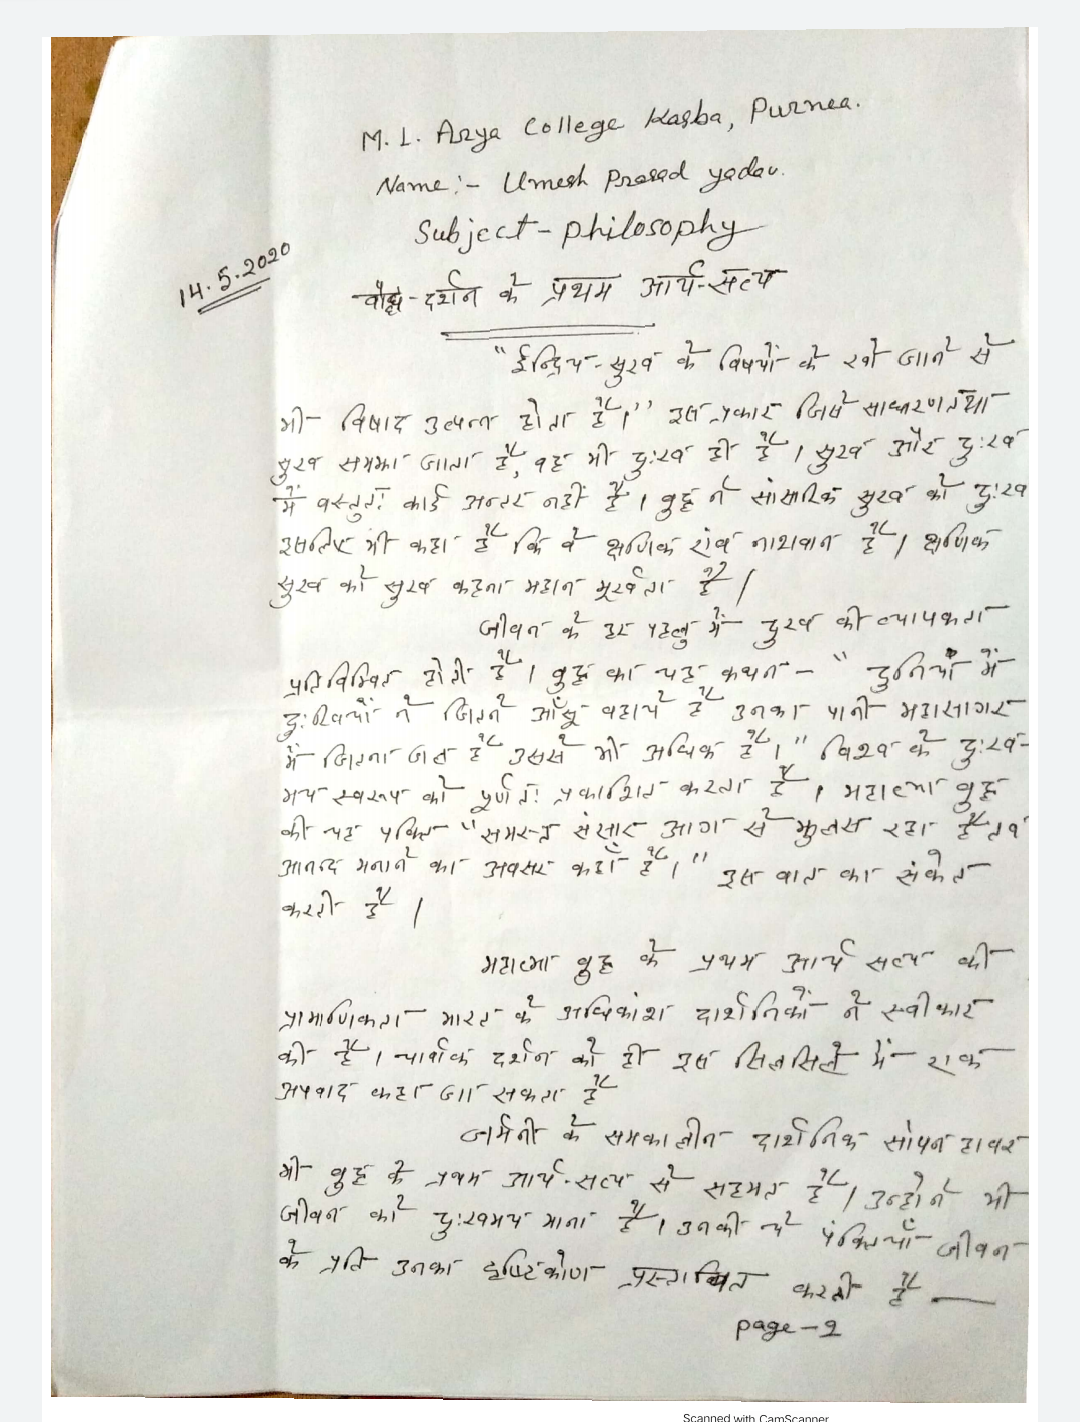 M. L. Arya College Kasba, Purnea.
Name:- Umesh Prasad yadav.
Subject - philosophy
14.5.2020
बौद्ध-दर्शन के प्रथम आर्य-सत्य
"ईन्द्रिय-सुख के विषयों के खो जाने से
भी विषाद उत्पन्न होता है।" इस प्रकार जिसे साधारणतया
सुख समझा जाता है, वह भी दुःख ही है। सुख और दुःख
में वस्तुतः कोई अन्तर नहीं है। बुद्ध ने सांसारिक सुख को दुःख
इसलिए भी कहा है कि वे क्षणिक एवं नाशवान है। क्षणिक
सुख को सुख कहना महान मूर्खता है।
जीवन के हर पहलु में दुख की व्यापकता
प्रतिबिम्बित होती है। बुद्ध का यह कथन - "दुनियाँ में
दुःखियों ने जितने आँसू बहाये है उनका पानी महासागर
में जितना जल है उससे भी अधिक है।" विश्व के दुःख-
मय स्वरूप को पूर्णतः प्रकाशित करता है। महात्मा बुद्ध
की यह पंक्ति "समस्त संसार आग से झुलस रहा है तब
आनन्द मनाने का अवसर कहाँ है।" इस बात का संकेत
करती है।
महात्मा बुद्ध के प्रथम आर्य सत्य की
प्रामाणिकता भारत के अधिकांश दार्शनिकों ने स्वीकार
की है। चार्वाक दर्शन को ही इस सिलसिले में एक
अपवाद कहा जा सकता है
जर्मनी के समकालीन दार्शनिक सोपनहावर
भी बुद्ध के प्रथम आर्य-सत्य से सहमत है। उन्होंने भी
जीवन को दुःखमय माना है। उनकी ये पंक्तियाँ जीवन
के प्रति उनका दृष्टिकोण प्रस्तावित करती है —
page-2
Scanned with CamScanner